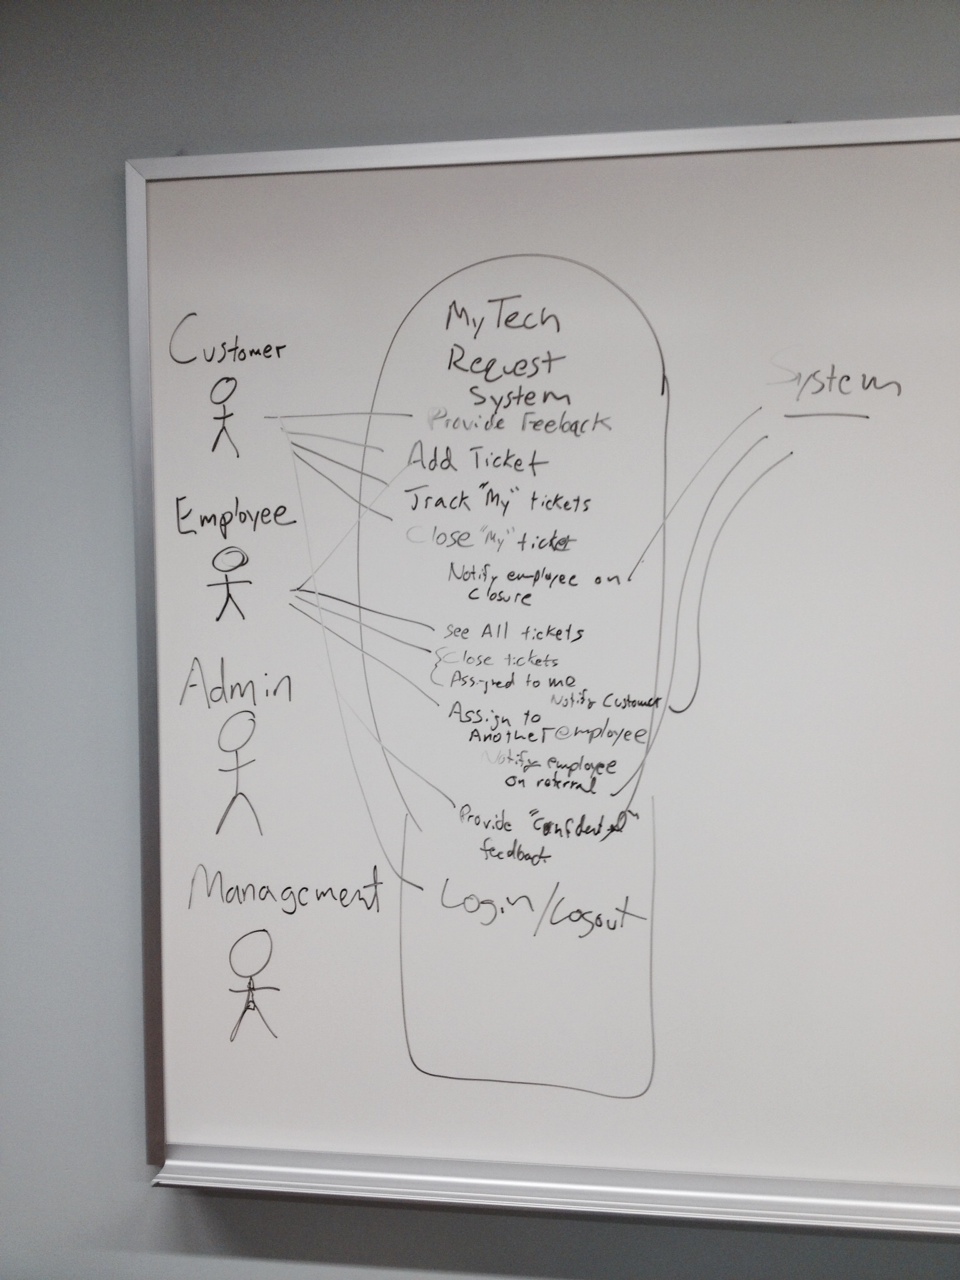 Customer
Employee
Admin
Management
My Tech
Request
System
Provide Feeback
Add Ticket
Track "My" tickets
Close "My" ticket
Notify employee on
Closure
See All tickets
Close tickets
Assigned to me
Notify Customer
Assign to
Another employee
Notify employee
on referral
Provide "Confidential"
feedback
Login/Logout
System